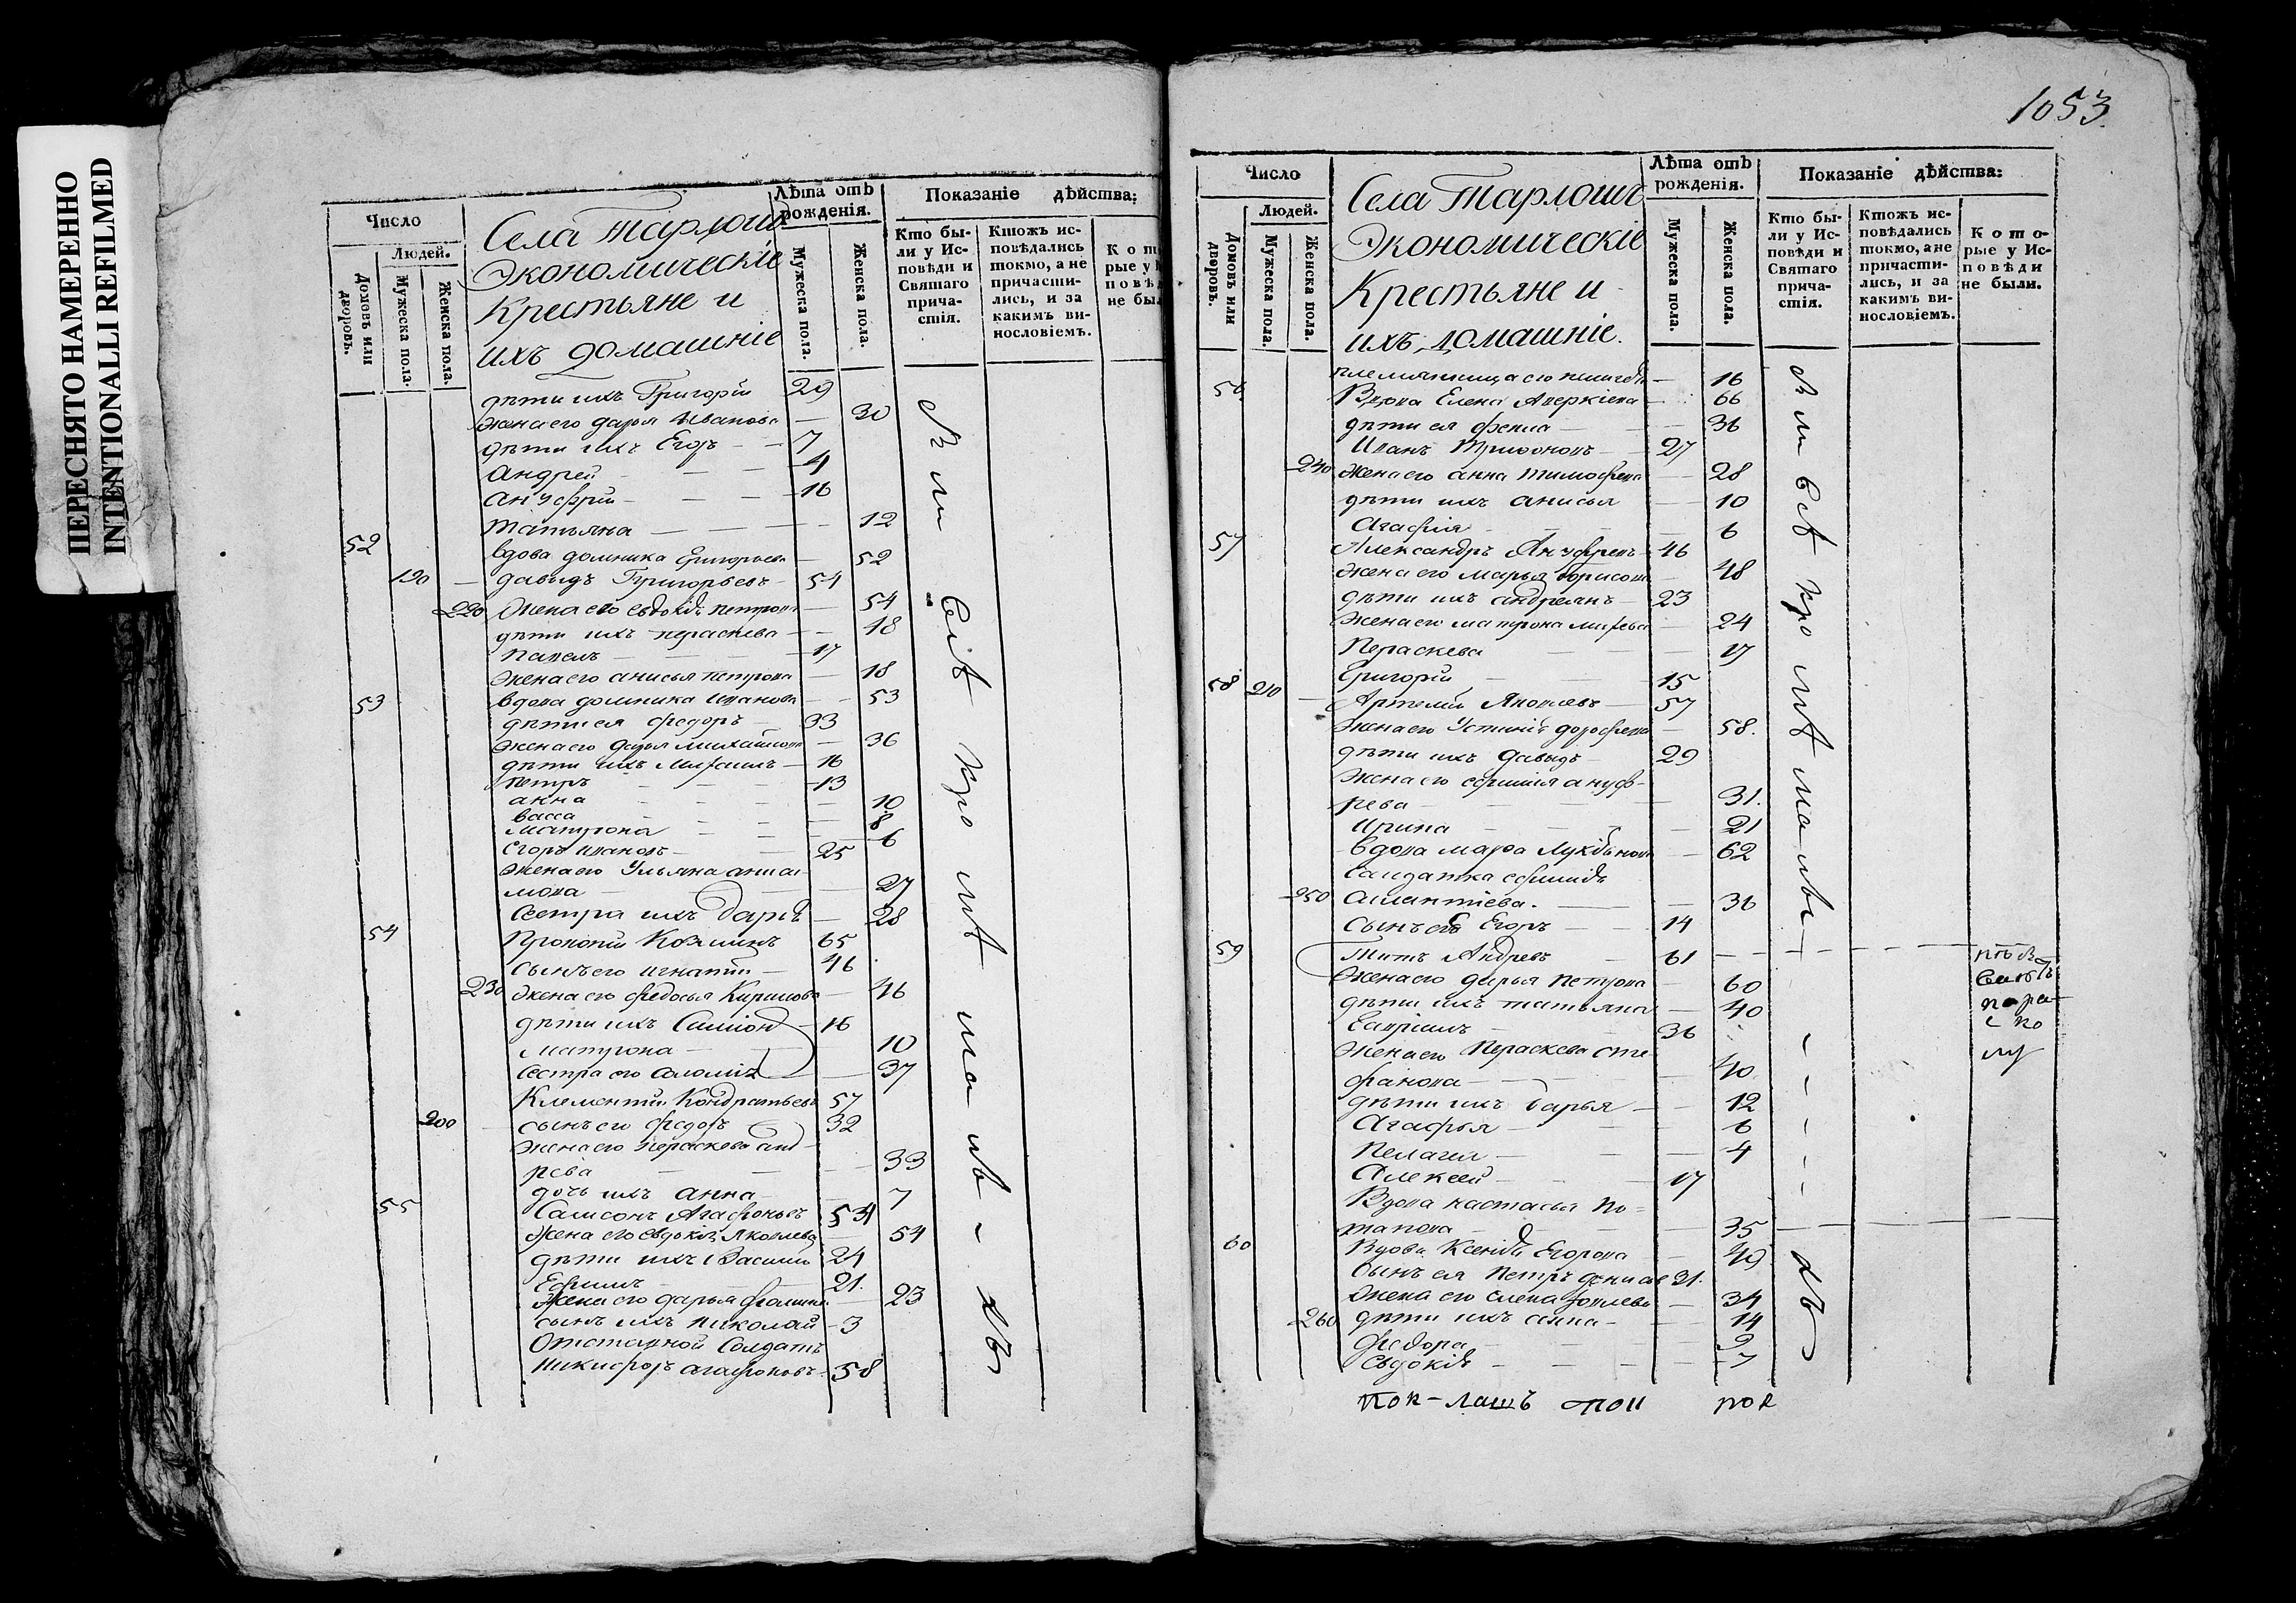 ПЕРЕСНЯТО НАМЕРЕННО
INTENTIONALLI REFILMED
Число
Людей.
Домовъ или дворовъ.
Мужеска пола.
Женска пола.
Села
Экономическіе
Крестьяне и
ихъ домашніе
Лѣта отъ
рожденія.
Мужеска пола.
Женска пола.
Показаніе дѣйства:
Кто бы-
ли у Ис-
повѣди и
Святаго
прича-
стія.
Ктожъ ис-
повѣдались
токмо, а не
причасти-
лись, и за
какимъ ви-
нословіемъ.
дѣти ихъ Григорій 29
жена его дарья Иванова — 30
дѣти ихъ Егоръ — 7
Андрей — 4
Ануфрій — 16
Татьяна — 12
52 вдова домника Григорьева — 52
190 — давыдъ Григорьевъ — 54
220 жена его Евдокія петрова — 54
дѣти ихъ пераскева — 18
павелъ — 17
жена его анисья петрова — 18
53 вдова домника иванова — 53
дѣти ея федоръ — 33
жена его дарья михайлова — 36
дѣти ихъ — 16
петръ — 13
анна — 10
васса — 8
матрона — 6
егоръ ивановъ — 25
жена его Ульяна
мова — 27
сестра ихъ дарья — 28
54 Прокопій Козминъ 65
сынъ его игнатій — 46
230 жена его федосья Кирилова — 46
дѣти ихъ 16
матрона — 10
сестра его соломія — 37
Климентій Кондратьевъ 57
200 сынъ его федоръ 32
жена его пераскева анд-
рева — 33
дочь ихъ анна — 7
55 Самсонъ Агафоновъ
жена его евдокія Яковлева — 54
дѣти ихъ Василій 24
Ефимъ — 21.
жена его дарья — 23
сынъ ихъ николай — 3
Отставной Солдатъ
Никифоръ агафоновъ — 58
1053.
Число
Людей.
Домовъ или дворовъ.
Мужеска пола.
Женска пола.
Села
Экономическіе
Крестьяне и
ихъ домашніе.
Лѣта отъ
рожденія.
Мужеска пола.
Женска пола.
Показаніе дѣйства:
Кто бы-
ли у Ис-
повѣди и
Святаго
прича-
стія.
Ктожъ ис-
повѣдались
токмо, а не
причасти-
лись, и за
какимъ ви-
нословіемъ.
Кото-
рые у Ис-
повѣди
не были.
племянница его — 16
56 Вдова Елена Аверкіева — 66
дѣти ея — 36
Иванъ Трифоновъ — 27
240 жена его анна тимофеева — 28
дѣти ихъ анисья — 10
Агафія — 6
57 Александръ Ануфревъ — 46
жена его марья борисова — 48
дѣти ихъ андреянъ — 23
жена его матрона — 24
Пераскева — 17
Григорій — 15
58 210 — Артемій Яковлевъ — 57
жена его Устинія дорофеева — 58.
дѣти ихъ давыдъ — 29
жена его ефимія ануф-
рева — 31.
Ирина — 21
вдова марфа Лукьянова — 62
салдатка ефимія
250 — 36
сынъ ея Егоръ — 14
59 Титъ Андревъ — 61
жена его дарья петрова — 60
дѣти ихъ татьяна — 40
Гаврилъ — 36
жена его Пераскева сте-
фанова — 40
дѣти ихъ дарья — 12
Агафья — 6
Пелагея — 4
Алексей — 17
Вдова настасья По-
тапова — 35
60 Вдова Ксенія Егорова — 49
сынъ ея Петръ 31.
жена его елена — 34
260 дѣти ихъ анна — 14
Федора — 9
Евдокія — 7